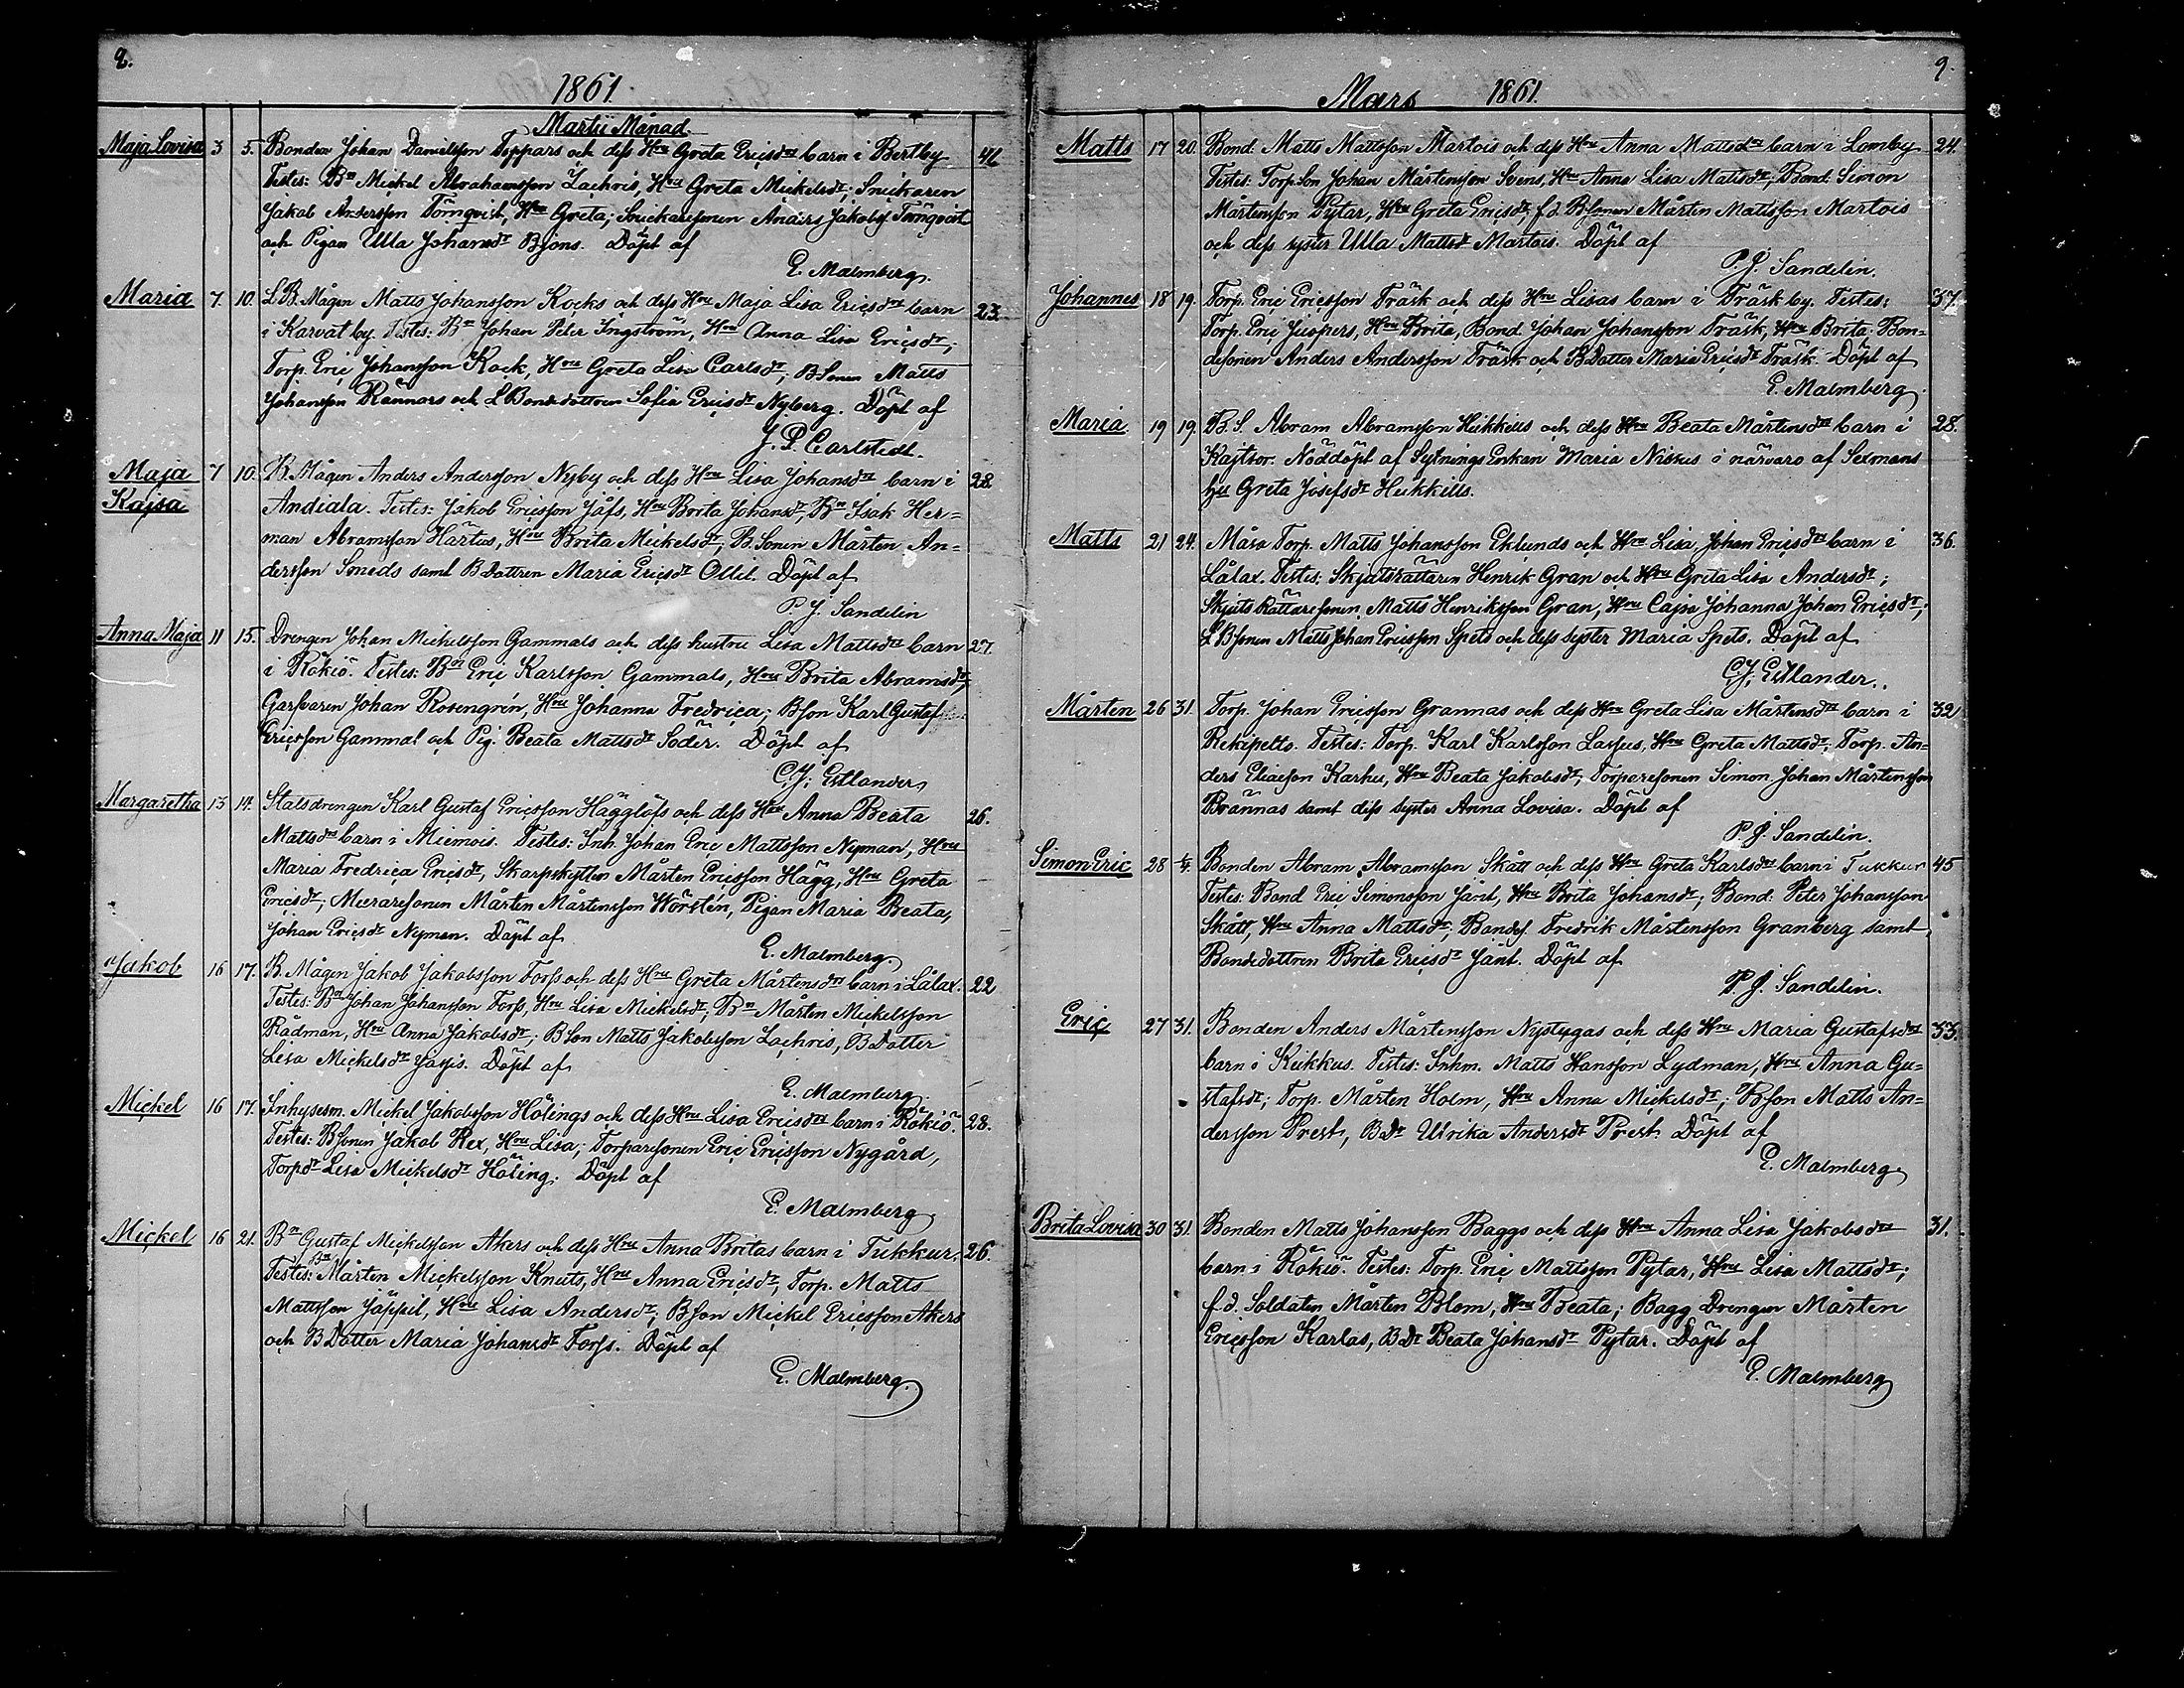 9.
1861.
Martii Månad.
Maja Lovisa 3 5. Bonden Johan Danielsson Toppars och dess Hru Greta Ericsdrs barn i Bertby 41
Testes: Bn Mickel Abrahamsson Zachris, Hru Greta Mickelsdr; Snickaren
Jakob Andersson Törnqvist, Hru Greta; Snickaresonen Anders Jakobss Törnqvist
och Pigan Ulla Johansdr Bjons. Döpt af
E. Malmberg.
Maria 7. 10. L.B. Mågen Matts Johansson Kocks och dess Hru Maja Lisa Ericsdrs barn 23.
i Karvat by. Testes: Bn Johan Peter Ingström, Hru Anna Lisa Ericsdr;
Torp. Eric Johansson Kock, Hru Greta Lisa Carlsdr; B Sonen Matts
Johansson Rännars och L Bondedottren Sofia Ericsdr Nyberg. Döpt af
J. P. Carlstedt.
Maja Kajsa 7 10. B. Mågen Anders Andersson Nyby och dess Hru Lisa Johansdrs barn i 28.
Andiala. Testes: Jakob Ericsson Jåfs, Hru Brita Johansdr, Bn Isak Her=
man Abramsson Härtus, Hru Brita Mickelsdr, B. Sonen Mårten An=
dersson Smeds samt B Dottren Maria Ericsdr Ollil. Döpt af
P. J. Sandelin
Anna Maja 11 15. Drengen Johan Mickelsson Gammals och dess hustru Lisa Mattsdrs barn 27.
i Rökiö. Testes: Bn Eric Karlsson Gammals, Hru Brita Abramsdr;
Garfvaren Johan Rosengrén, Hru Johanna Fredrica; Bson Karl Gustaf
Ericsson Gammal och Pig. Beata Mattsdr Söder. Döpt af
C. J. Estlander
Margaretha 13 14. Statsdrengen Karl Gustaf Ericsson Hägglöfs och dess Hru Anna Beata 26.
Mattsdrs barn i Miemois. Testes: Inh. Johan Eric Mattsson Nyman, Hru
Maria Fredrica Ericsdr, Skarpskytten Mårten Ericsson Hägg, Hru Greta
Ericsdr, Muraresonen Mårten Mårtensson Hörstén, Pigan Maria Beata,
Johan Ericsdr Nyman. Döpt af
E. Malmberg.
Jakob 16 17. B. Mågen Jakob Jakobsson Forss och dess Hru Greta Mårtensdrs barn i Lålax. 22
Testes: Bn Johan Johansson Forss, Hru Lisa Mickelsdr; Bn Mårten Mickelsson
Rådman, Hru Anna Jakobsdr; B Son Matts Jakobsson Zachris, B Dotter
Lisa Mickelsdr Jossis. Döpt af
E. Malmberg.
Mickel 16 17. Inhysesm. Mickel Jakobsson Hölings och dess Hru Lisa Ericsdrs barn i Rökiö. 28.
Testes: B Sonen Jakob Rex, Hru Lisa; Torparesonen Eric Ericsson Nygård,
Torpdr Lisa Mickelsdr Höling. Döpt af
E. Malmberg
Mickel 16 21. Bn Gustaf Mickelsson Akers och dess Hru Anna Britas barn i Tukkur. 26.
Testes: Bn Mårten Mickelsson Knuts, Hru Anna Ericsdr, Torp. Matts
Mattsson Jäppil, Hru Lisa Andersdr; B Son Mickel Ericsson Akers
och B Dotter Maria Johansdr Forss. Döpt af
E. Malmberg.
9.
Mars 1861.
Matts 17 20. Bond. Matts Mattsson Martois och dess Hru Anna Mattsdrs barn i Lomby 24.
Testes: Torp. Son Johan Mårtensson Svens, Hru Anna Lisa Mattsdr, Bond. Simon
Mårtensson Pytar, Hru Greta Ericsdr, f.d. B Sonen Mårten Mattsson Martois
och dess syster Ulla Mattsdr Martois. Döpt af
P. J. Sandelin.
Johannes 18 19. Torp. Eric Ericsson Träsk och dess Hru Lisas barn i Träsk by. Testes: 37.
Torp. Eric Juspers, Hru Brita, Bond. Johan Johansson Träsk, Hru Brita. Bon=
desonen Anders Andersson Träsk och B Dotter Maria Ericsdr Träsk. Döpt af
E. Malmberg.
Maria 19 19. B. S. Abram Abramsson Heikkus och dess Hru Beata Mårtensdrs barn i 28.
Kajtsor. Nöddöpt af Sytnings Enkan Maria Niskus i närvaro af Sexmans
hu Greta Josefsdr Heikkills.
Matts 21 24. Måsa Torp. Matts Johansson Eklunds och Hru Lisa Johan Ericsdrs barn i 36.
Lålax. Testes: Skjutsrättaren Henrik Gran och Hru Greta Lisa Andersdr;
Skjuts Rättaresonen Matts Henriksson Gran, Hru Cajsa Johanna Johan Ericsdr,
L B sonen Matts Johan Ericsson Spets och dess syster Maria Spets. Döpt af
C. J. Estlander.
Mårten 26 31. Torp. Johan Ericsson Grannas och dess Hru Greta Lisa Mårtensdrs barn i 32
Rekipelto. Testes: Torp. Karl Karlsson Lassus, Hru Greta Mattsdr; Torp. An=
ders Eliasson Karhu, Hru Beata Jakobsdr, Torparesonen Simon Johan Mårtensson
Brännas samt dess syster Anna Lovisa. Döpt af
P. J. Sandelin.
Simon Eric 28 1/4. Bonden Abram Abramsson Skått och dess Hru Greta Karlsdrs barn i Tukkur 45
Testes: Bond Eric Simonsson Jänt, Hru Brita Johansdr; Bond. Peter Johansson
Skått, Hru Anna Mattsdr; Bondes. Fredrik Mårtensson Granberg samt
Bondedottren Brita Ericsdr Jänt. Döpt af
P. J. Sandelin.
Eric 27 31. Bonden Anders Mårtensson Nystygas och dess Hru Maria Gustafsdrs 33.
barn i Kukkus. Testes: Inhm. Matts Hansson Lydman, Hru Anna Gu=
stafsdr; Torp. Mårten Holm, Hru Anna Mickelsdr; B Son Matts An=
dersson Prest, B Dr Ulrika Andersdr Prest. Döpt af
E. Malmberg
Brita Lovisa 30 31. Bonden Matts Johansson Baggs och dess Hru Anna Lisa Jakobsdrs 31.
barn i Rökiö. Testes: Torp. Eric Mattsson Pytar, Hru Lisa Mattsdr;
f.d. Soldaten Mårten Blom, Hru Beata; Bagg Drengen Mårten
Ericsson Karlas, B Dr Beata Johansdr Pytar. Döpt af
E. Malmberg